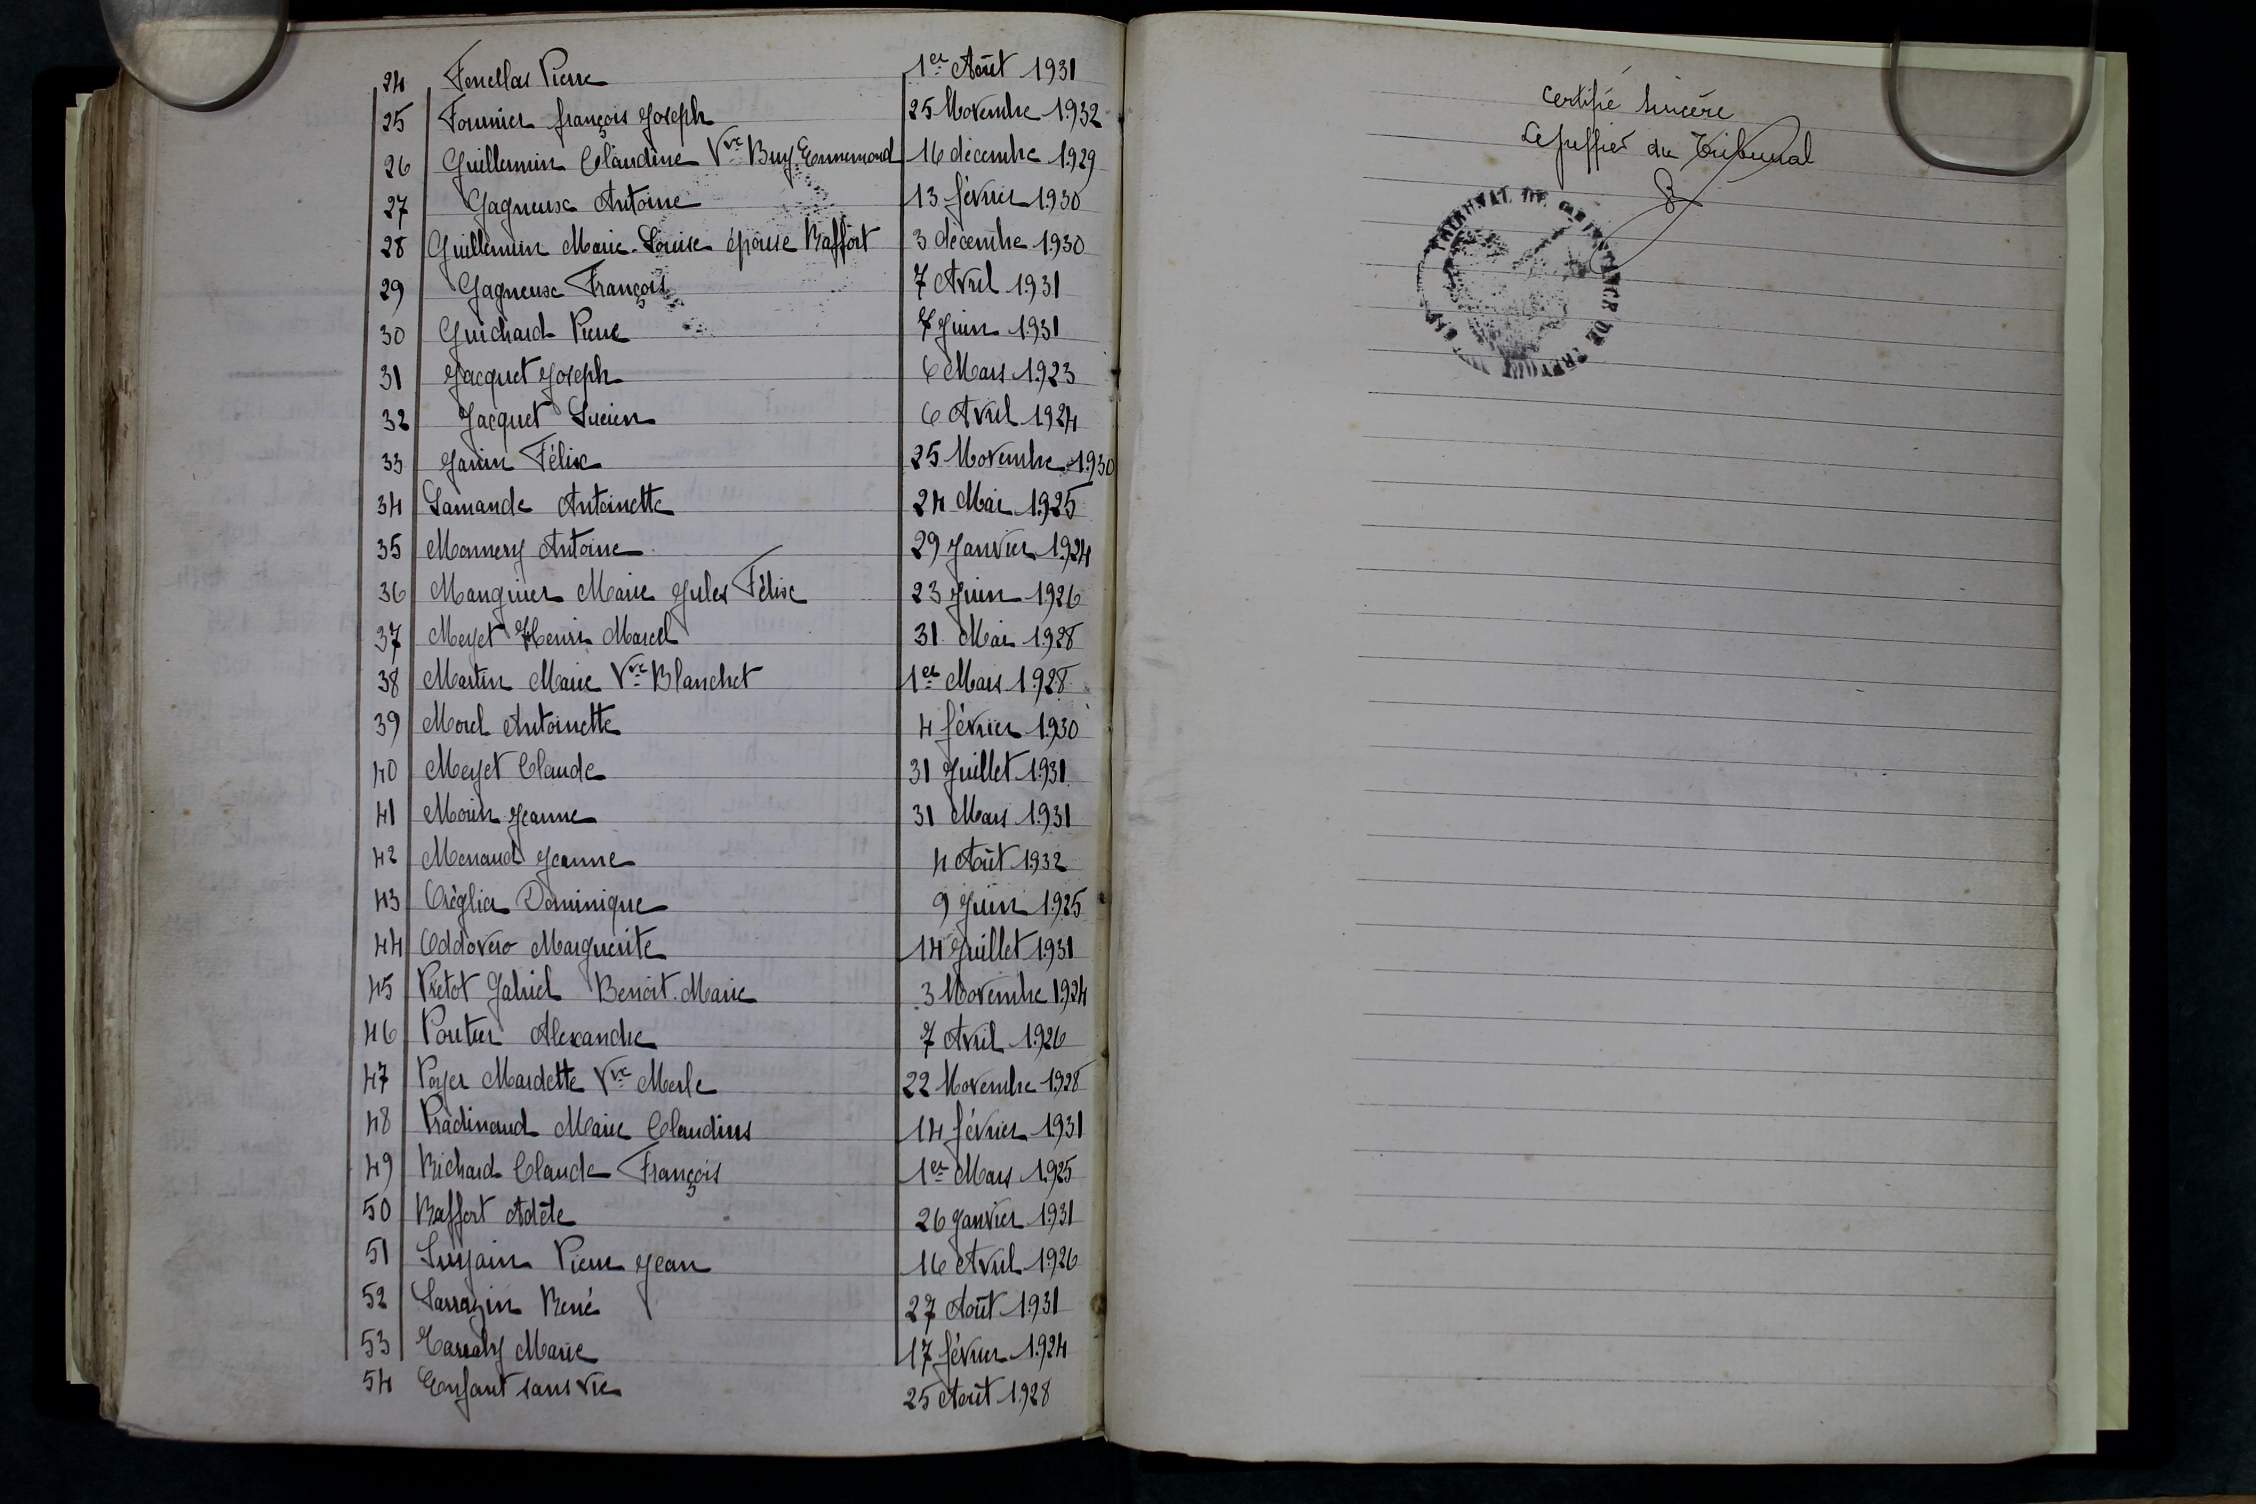 24 Fenellas Pierre 1er Août 1931
25 Fournier françois Joseph 25 Novembre 1932
26 Guillermin Claudine Vve Buy Ennemond 16 décembre 1929
27 Gagneux Antoine 13 février 1930
28 Guillermin Marie-Louise épouse Raffort 3 décembre 1930
29 Gagneux François 7 Avril 1931
30 Guichard Pierre 7 Juin 1931
31 Jacquet Joseph 6 Mars 1923
32 Jacquet Lucien 6 Avril 1924
33 Janin Félix 25 Novembre 1930
34 Lamande Antoinette 24 Mai 1925
35 Monnery Antoine 29 Janvier 1924
36 Manguier Marie Jules Félix 23 Juin 1926
37 Meyet Henri Marcel 31 Mai 1928
38 Martin Marie Vve Blanchet 1er Mars 1928
39 Morel Antoinette 4 février 1930
40 Meyet Claude 31 Juillet 1931
41 Morin Jeanne 31 Mars 1931
42 Menaud Jeanne 4 Août 1932
43 Oréglia Dominique 9 Juin 1925
44 Oddovero Marguerite 14 Juillet 1931
45 Pretot Gabriel Benoit-Marie 3 Novembre 1924
46 Poutier Alexandre 7 Avril 1926
47 Poyer Mardette Vve Merle 22 Novembre 1928
48 Pradinaud Marie Claudius 14 février 1931
49 Richard Claude François 1er Mars 1925
50 Raffort Adèle 26 Janvier 1931
51 Pierre Jean 16 Avril 1926
52 Sarrazin René 27 Août 1931
53 Marie 17 février 1924
54 Enfant sans vie 25 Août 1928
Certifié Sincère
Le Greffier du Tribunal
TRIBUNAL DE INSTANCE DE TREVOUX